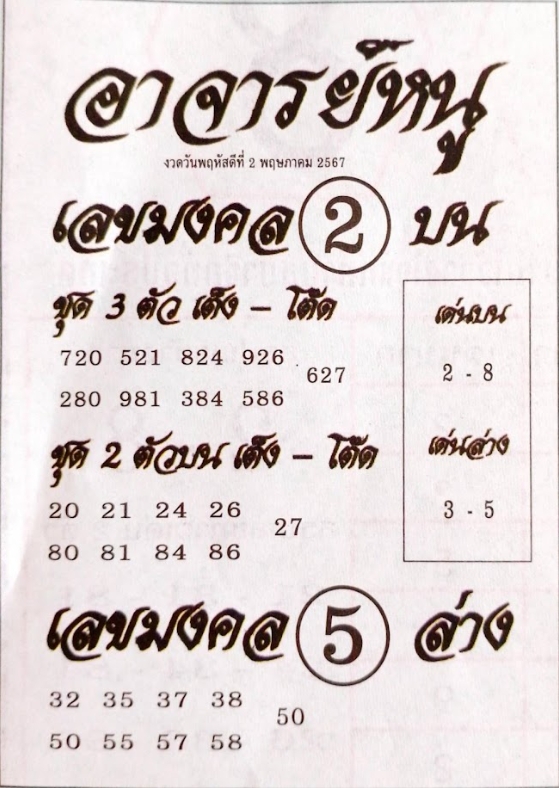 อาจารย์หนู
งวดวันพฤหัสดีที่ 2 พฤษภาคม 2567
เลขมงคล 2 บน
ชุด 3 ตัว เต็ง - โต๊ด
720 521 824 926
627
280 981 384 586
เด่นบน
2 - 8
เด่นล่าง
3 - 5
ชุด 2 ตัวบน เต็ง - โต๊ด
20 21 24 26
27
80 81 84 86
เลขมงคล 5 ล่าง
32 35 37 38
50
50 55 57 58